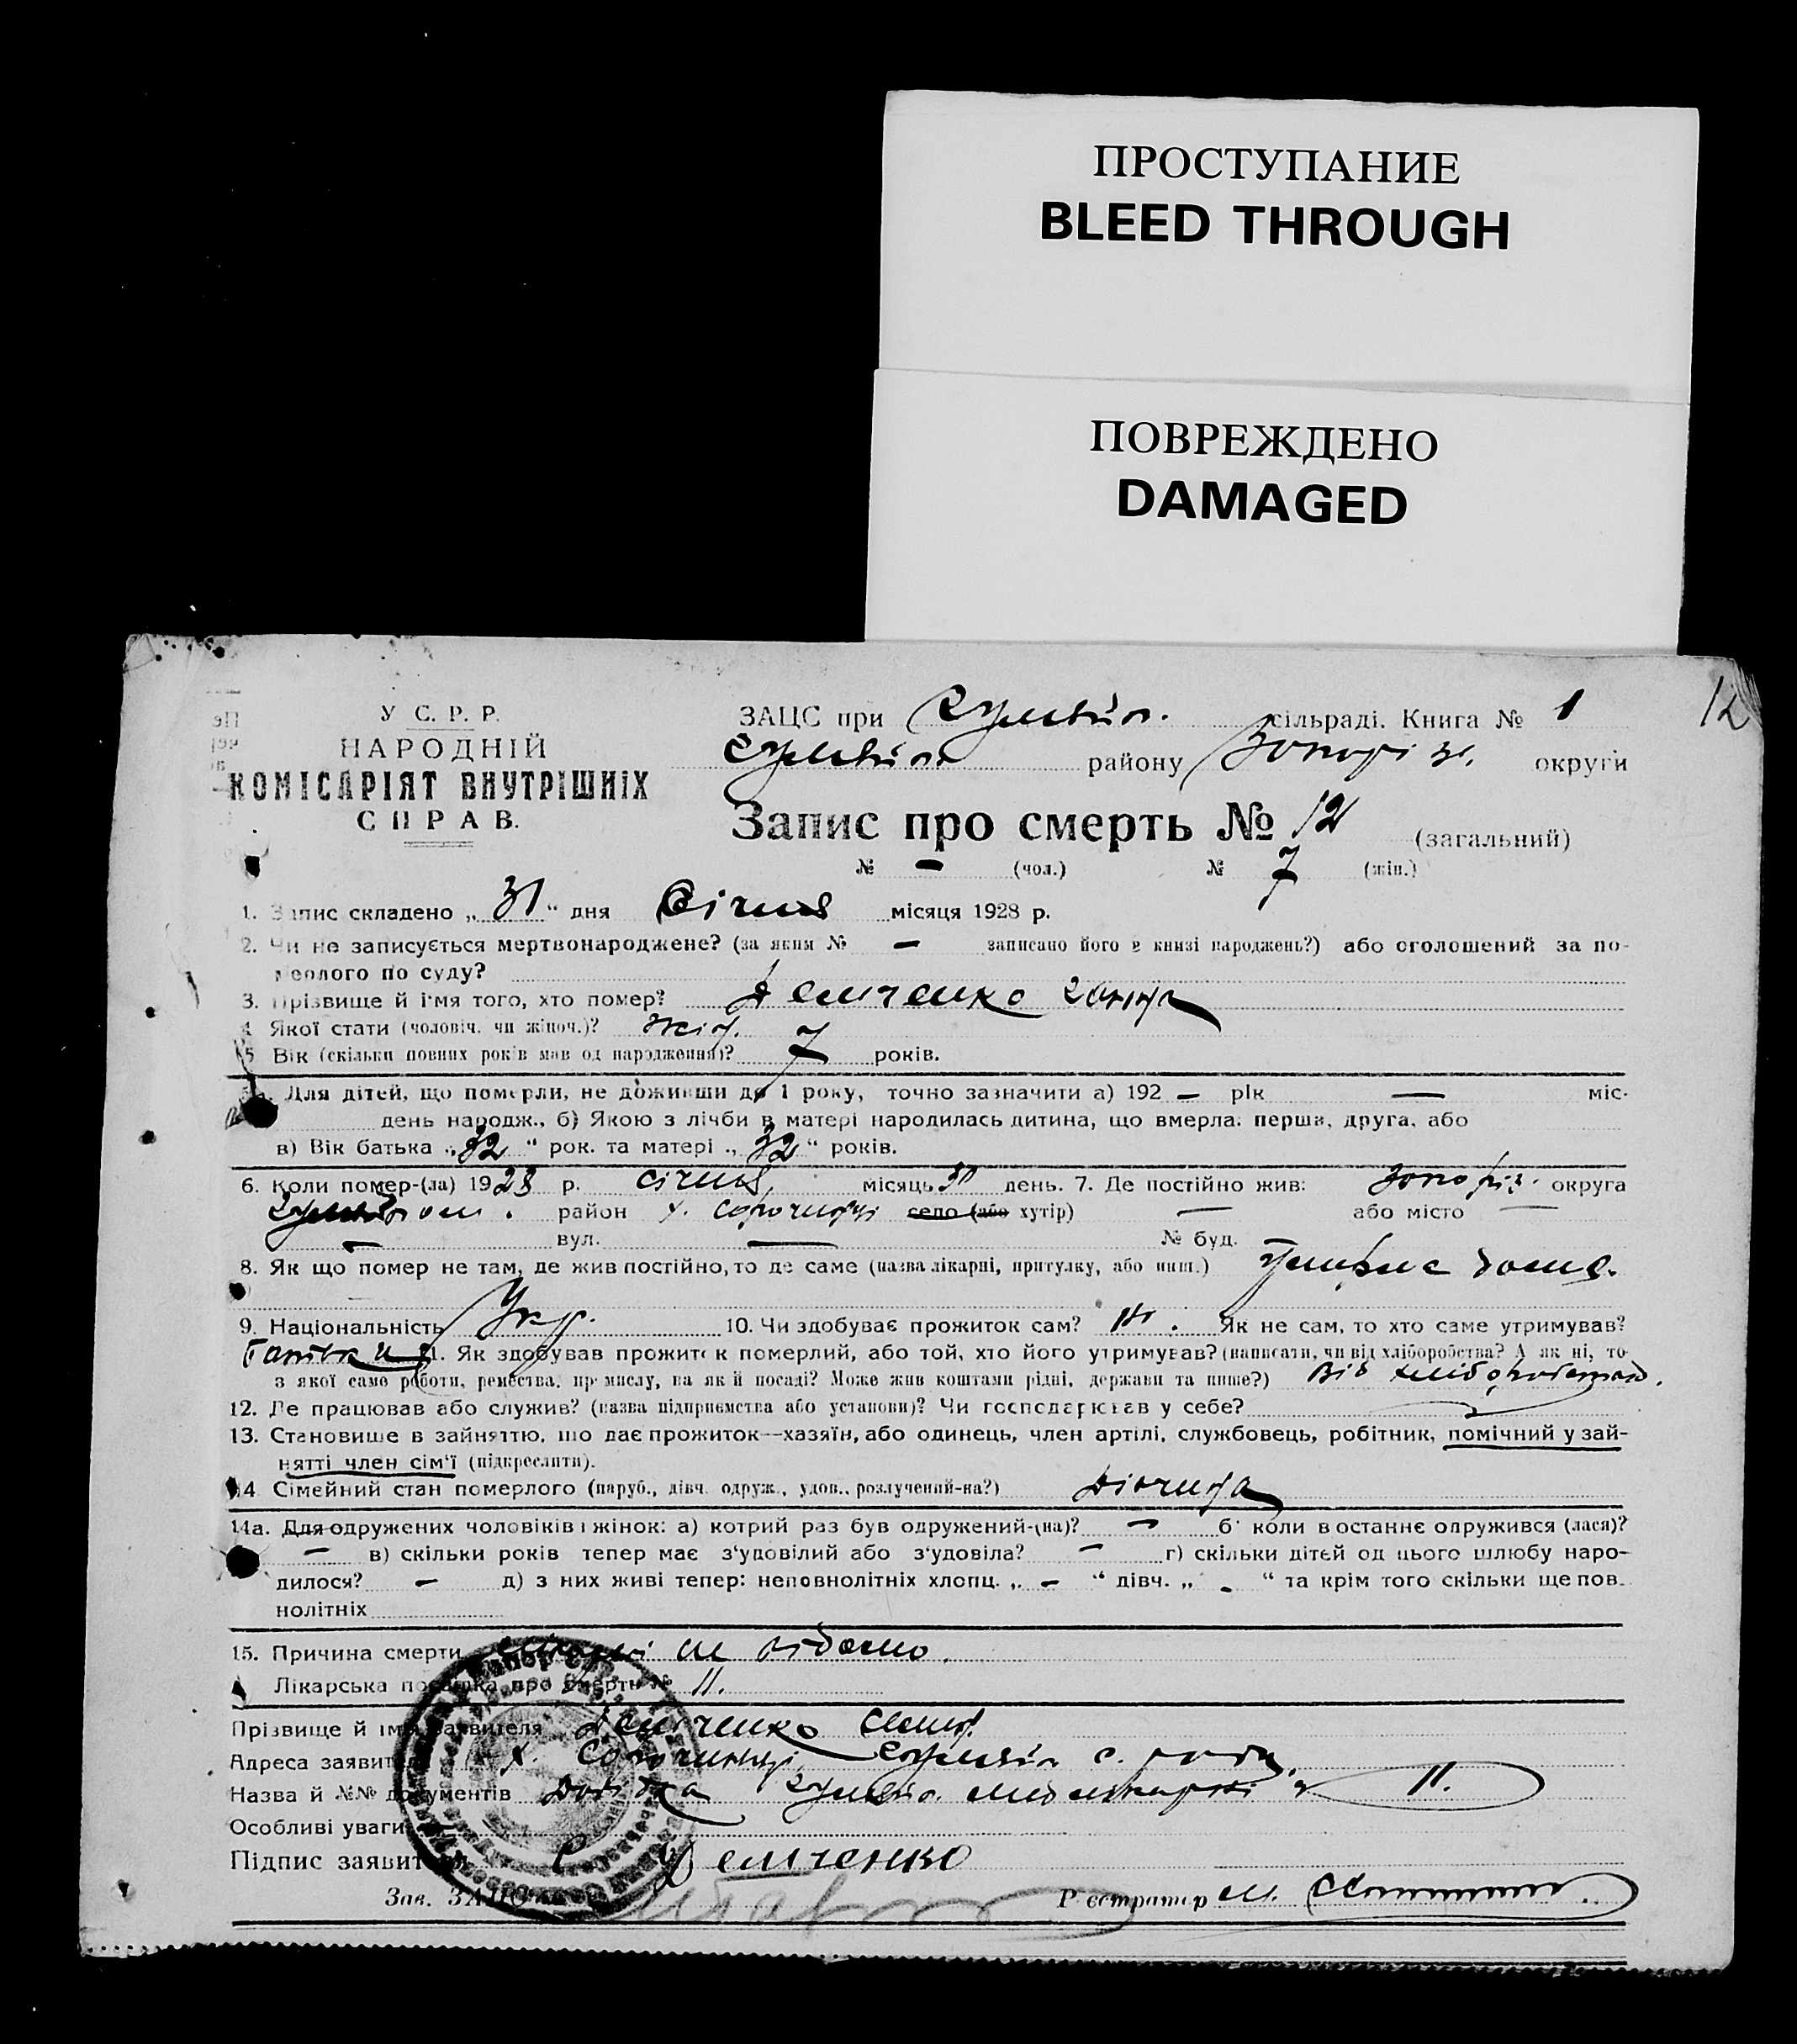 ПРОСТУПАНИЕ
BLEED THROUGH
ПОВРЕЖДЕНО
DAMAGED
12
У С. Р. Р.
НАРОДНІЙ
КОМІСАРІЯТ ВНУТРІШНІХ
СПРАВ.
ЗАЦС при Гуляйп. сільраді. Книга № 1
Гуляйп району Запоріз. округи
Запис про смерть № 12 (загальний)
№ — (чол.) № 7 (жін.)
1. Запис складено „ 31 " дня Січня місяця 1928 р.
2. Чи не записується мертвонароджене? (за яким № — записано його в книзі народжень?) або оголошений за по-
мерлого по суду?
3. Прізвище й ім'я того, хто помер? Демченко Ганна
4 Якої стати (чоловіч. чи жіноч.)? жін.
5 Вік (скільки повних років мав од народження)? 7 років.
Для дітей, що померли, не доживши до 1 року, точно зазначити а) 192 — рік — міс.
день народж., б) Якою з лічби в матері народилась дитина, що вмерла: перша, друга, або
в) Вік батька „ 32 " рок. та матері „ 32 " років.
6. Коли помер-(ла) 1928 р. січня місяць 30 день. 7. Де постійно жив: Запоріз. округа
район х. село (або хутір) — або місто —
— вул. — № буд. —
8. Як що помер не там, де жив постійно, то де саме (назва лікарні, притулку, або инш.) Умерла дома.
9. Національність Укр. 10. Чи здобуває прожиток сам? Ні. Як не сам, то хто саме утримував?
Батьки 11. Як здобував прожиток померлий, або той, хто його утримував? (написати, чи від хліборобства? А як ні, то
з якої саме роботи, ремества, промислу, на якій посаді? Може жив коштами рідні, держави та инше?) Від хліборобства.
12. Де працював або служив? (назва підприємства або установи)? Чи господарював у себе?
13. Становище в зайняттю, що дає прожиток—хазяїн, або одинець, член артілі, службовець, робітник, помічний у зай-
нятті член сім'ї (підкреслити).
14 Сімейний стан померлого (паруб., дівч. одруж., удов., розлучений-на?) Дівчина
14а. Для одружених чоловіків і жінок: а) котрий раз був одружений-(на)? — б коли в останнє одружився (лася)?
— в) скільки років тепер має з'удовілий або з'удовіла? — г) скільки дітей од цього шлюбу наро-
дилося? — д) з них живі тепер: неповнолітніх хлопц. „ — " дівч. „ - " та крім того скільки ще пов-
нолітніх
15. Причина смерти не відомо.
Лікарська посвідка про смерть № 11.
Прізвище й ім'я заявителя Демченко Семен
Адреса заявителя х. Гуляйп с. ради
Назва й №№ документів Довідка Гуляйп. 11.
Особливі уваги
Підпис заявителя С. Демченко
Зав. ЗАЦС Реєстратор М.